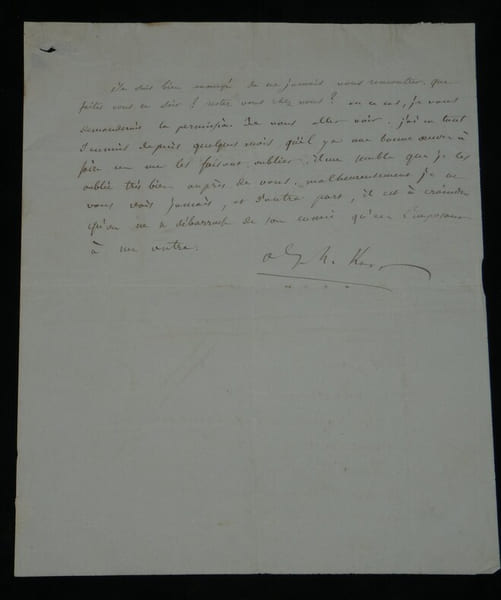 Je suis bien ennuyé de ne jamais vous rencontrer. que
faites vous ce soir ? restez vous chez vous ? en ce cas, je vous
demanderais la permission de vous aller voir. j'ai eu tant
d'ennuis depuis quelques mois qu'il y a une bonne œuvre à
faire en me les faisant oublier. il me semble que je les
oublie très bien auprès de vous. malheureusement je ne
vous vois jamais, et d'autre part, il est à craindre
qu'on ne se débarrasse de son ennui qu'en l'imposant
à un autre.
Alph. Karr